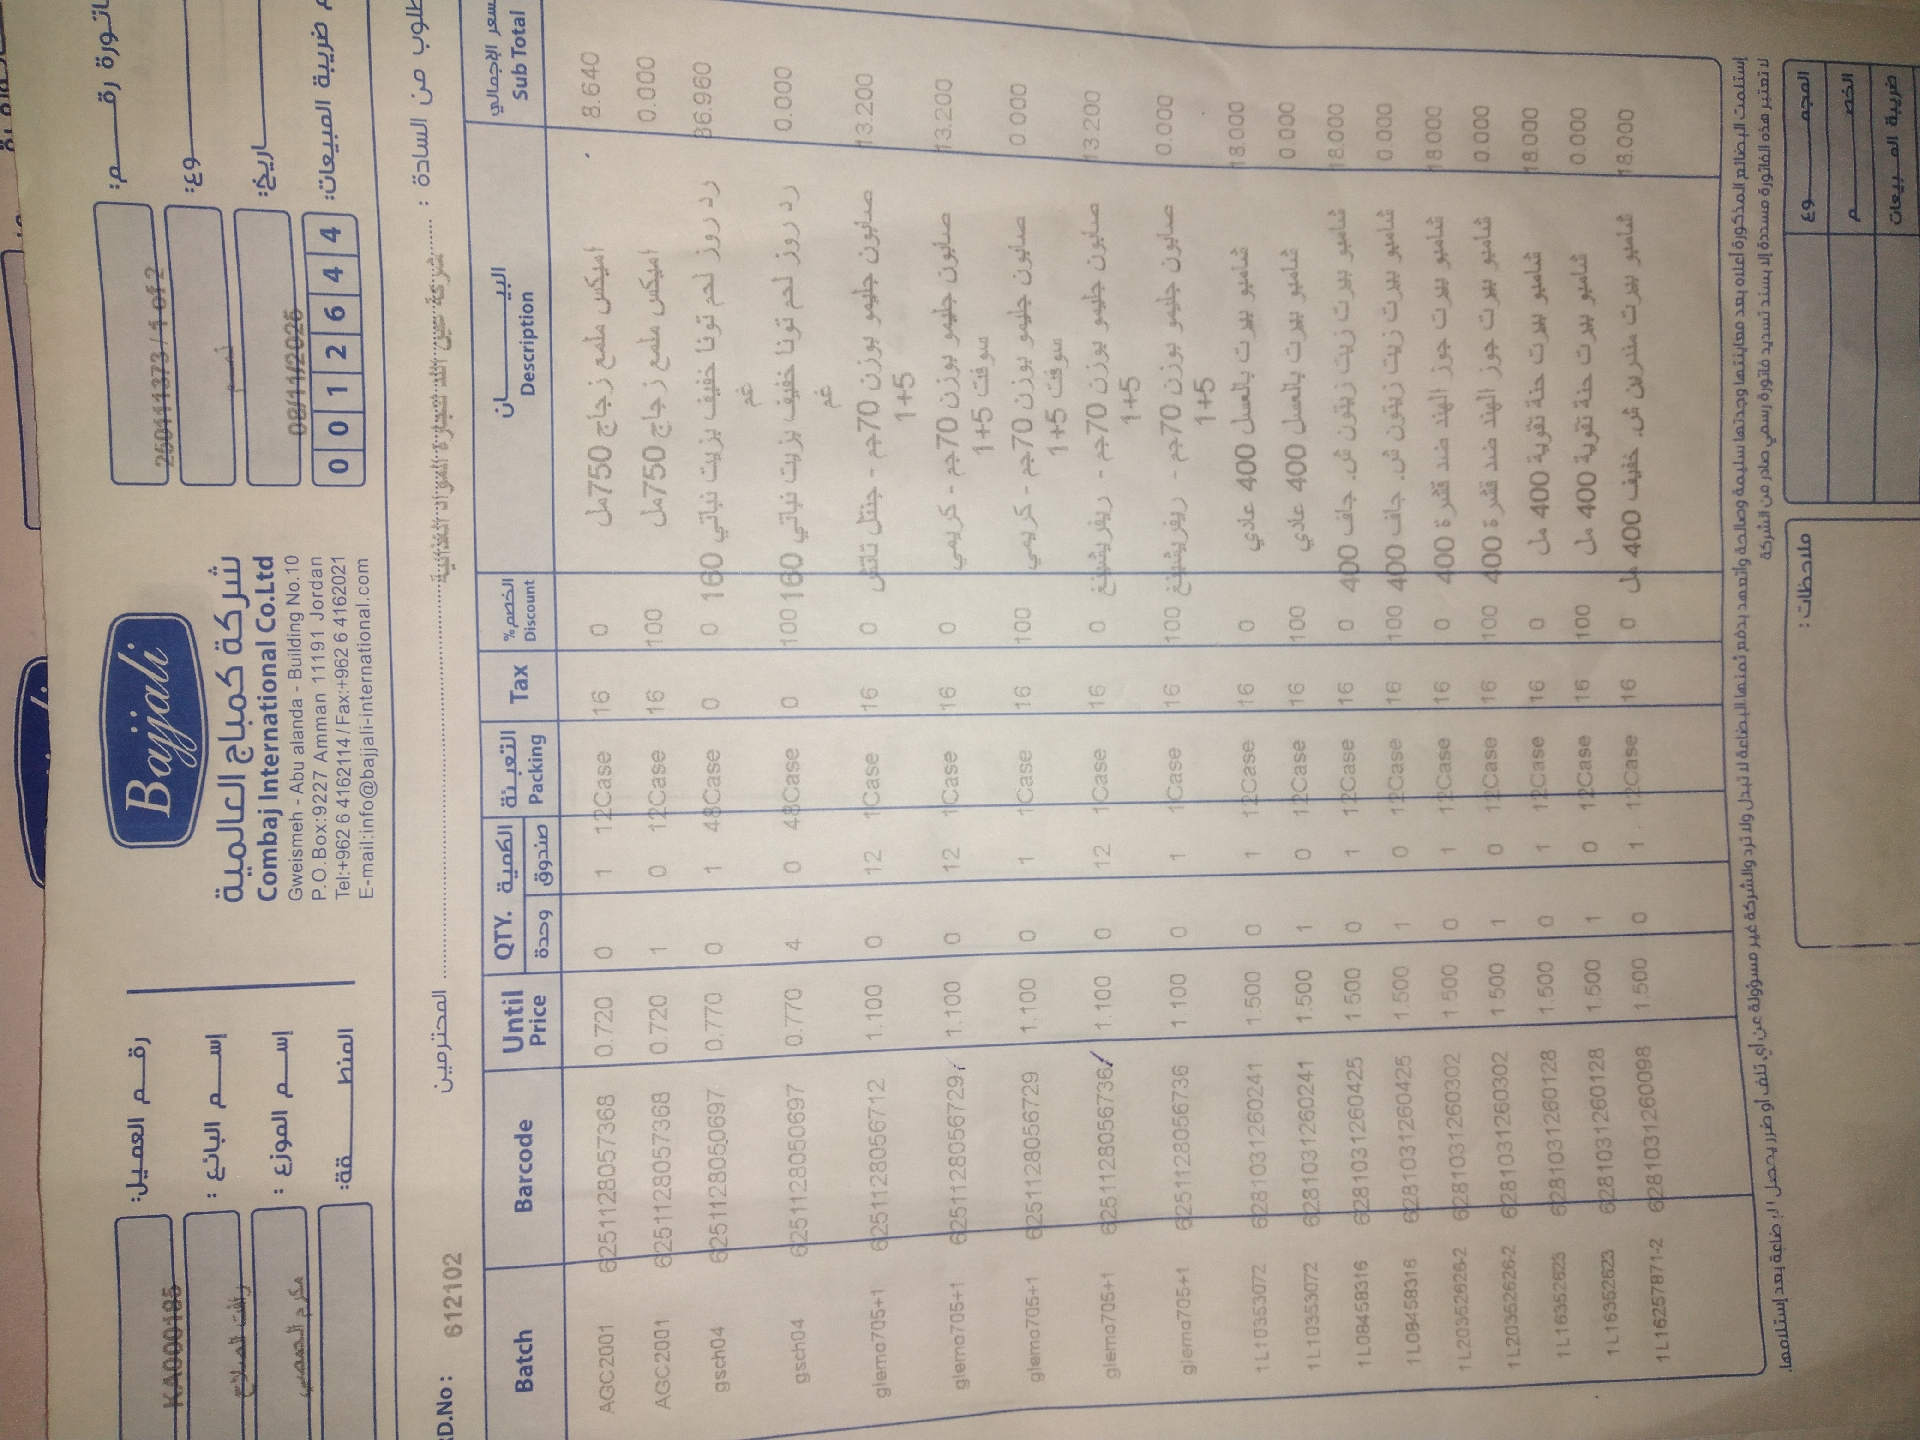 Bajjali
شركة كمباج العالمية
Combaj International Co.Ltd
Gweismeh - Abu alanda - Building No.10
P.O.Box:9227 Amman 11191 Jordan
Tel:+962 6 4162114 / Fax:+962 6 4162021
E-mail:info@bajjali-international.com
رقم العميل: KA000185
إسم البائع :
إسم الموزع :
المنطقة:
اتورة رقم: 250111373 / 1 of 2
وع:
اريخ: 08/11/2025
م ضريبة المبيعات: 0 0 1 2 6 4 4
طلوب من السادة : المحترمين
RD.No: 612102
Batch Barcode Until Price QTY. الكمية وحدة صندوق التعبئة Packing Tax الخصم% Discount البيان Description سعر الإجمالي Sub Total
AGC2001 6251128057368 0.720 0 1 12Case 16 0 اميكس ملمع زجاج 750مل 8.640
AGC2001 6251128057368 0.720 1 0 12Case 16 100 اميكس ملمع زجاج 750مل 0.000
gsch04 6251128050697 0.770 0 1 48Case 0 0 رد روز لحم تونا خفيف بزيت نباتي 160 غم 36.960
gsch04 6251128050697 0.770 4 0 48Case 0 100 رد روز لحم تونا خفيف بزيت نباتي 160 غم 0.000
glemo705+1 6251128056712 1.100 0 12 1Case 16 0 صابون جليمو بوزن 70جم - جنتل تاتش 5+1 13.200
glemo705+1 6251128056729 1.100 0 12 1Case 16 0 صابون جليمو بوزن 70جم - كريمي سوفت 5+1 13.200
glemo705+1 6251128056729 1.100 0 1 1Case 16 100 صابون جليمو بوزن 70جم - كريمي سوفت 5+1 0.000
glemo705+1 6251128056736 1.100 0 12 1Case 16 0 صابون جليمو بوزن 70جم - ريفريشينغ 5+1 13.200
glemo705+1 6251128056736 1.100 0 1 1Case 16 100 صابون جليمو بوزن 70جم - ريفريشينغ 5+1 0.000
1L10353072 6281031260241 1.500 0 1 12Case 16 0 شامبو بيرت بالعسل 400 عادي 18.000
1L10353072 6281031260241 1.500 1 0 12Case 16 100 شامبو بيرت بالعسل 400 عادي 0.000
1L08458316 6281031260425 1.500 0 1 12Case 16 0 شامبو بيرت زيت زيتون ش. جاف 400 18.000
1L08458316 6281031260425 1.500 1 0 12Case 16 100 شامبو بيرت زيت زيتون ش. جاف 400 0.000
1L20352626-2 6281031260302 1.500 0 1 12Case 16 0 شامبو بيرت جوز الهند ضد قشرة 400 18.000
1L20352626-2 6281031260302 1.500 1 0 12Case 16 100 شامبو بيرت جوز الهند ضد قشرة 400 0.000
1L16352623 6281031260128 1.500 0 1 12Case 16 0 شامبو بيرت حنة تقوية 400 مل 18.000
1L16352623 6281031260128 1.500 1 0 12Case 16 100 شامبو بيرت حنة تقوية 400 مل 0.000
1L16257871-2 6281031260098 1.500 0 1 12Case 16 0 شامبو بيرت مندرين ش. خفيف 400 مل 18.000
إستلمت البضائع المذكورة أعلاه بعد معاينتها وجدتها سليمة وصالحة وأتعهد بدفع ثمنها البضاعة لا تبدل ولا ترد والشركة غير مسؤولة عن أي تلف أو ضرر يحصل للبضاعة بعد إستلامها.
لا تعتبر هذه الفاتورة مسددة إلا بسند تسديد فاتورة رسمي صادر من الشركة
ملاحظات :
المجموع
الخصم
ضريبة المبيعات